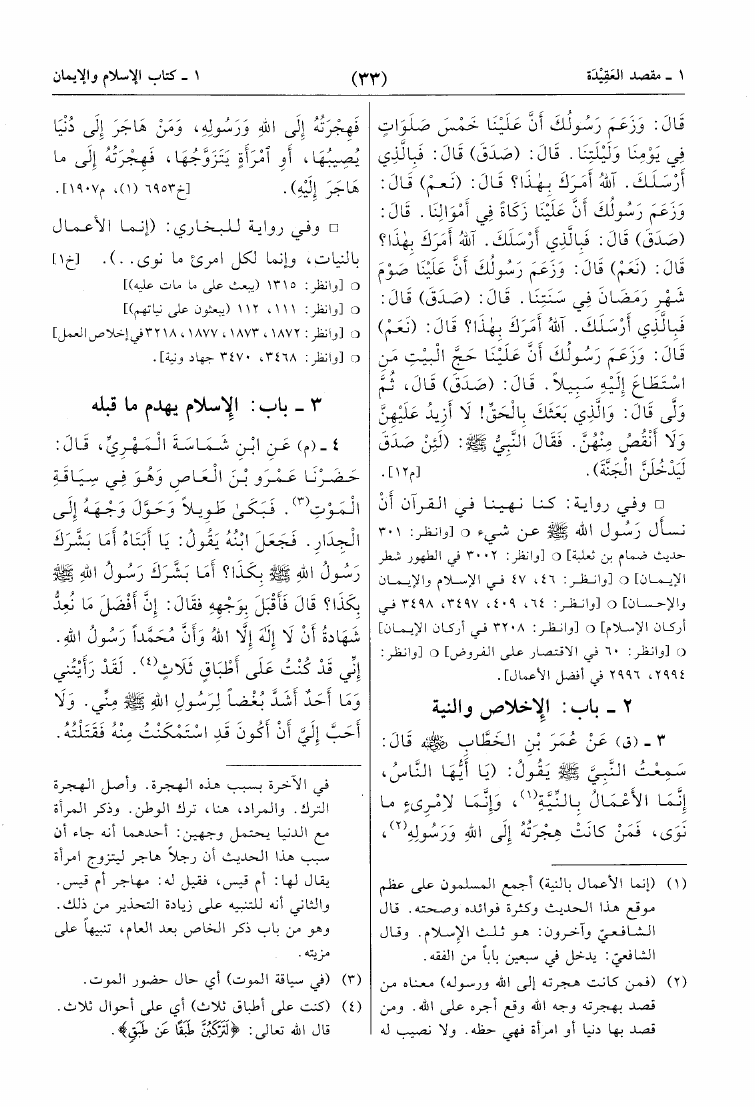 ١ ـ مقصد العَقِيْدَة
(٣٣)
١ ـ كتاب الإسلام والإيمان
قَالَ: وَزَعَمَ رَسُولُكَ أَنَّ عَلَيْنَا خَمْسَ صَلَوَاتٍ
فِي يَوْمِنَا وَلَيْلَتِنَا. قَالَ: (صَدَقَ) قَالَ: فَبِالَّذِي
أَرْسَلَكَ. آللهُ أَمَرَكَ بِهٰذَا؟ قَالَ: (نَعَمْ) قَالَ:
وَزَعَمَ رَسُولُكَ أَنَّ عَلَيْنَا زَكَاةً فِي أَمْوَالِنَا. قَالَ:
(صَدَقَ) قَالَ: فَبِالَّذِي أَرْسَلَكَ. آللهُ أَمَرَكَ بِهٰذَا؟
قَالَ: (نَعَمْ) قَالَ: وَزَعَمَ رَسُولُكَ أَنَّ عَلَيْنَا صَوْمَ
شَهْرِ رَمَضَانَ فِي سَنَتِنَا. قَالَ: (صَدَقَ) قَالَ:
فَبِالَّذِي أَرْسَلَكَ. آللهُ أَمَرَكَ بِهٰذَا؟ قَالَ: (نَعَمْ)
قَالَ: وَزَعَمَ رَسُولُكَ أَنَّ عَلَيْنَا حَجَّ الْبَيْتِ مَنِ
اسْتَطَاعَ إِلَيْهِ سَبِيلاً. قَالَ: (صَدَقَ) قَالَ، ثُمَّ
وَلَّى قَالَ: وَالَّذِي بَعَثَكَ بِالْحَقِّ! لَا أَزِيدُ عَلَيْهِنَّ
وَلَا أَنْقُصُ مِنْهُنَّ. فَقَالَ النَّبِيُّ ﷺ: (لَئِنْ صَدَقَ
لَيَدْخُلَنَّ الْجَنَّةَ). [م١٢].
□ وفي رواية: كنا نهينا في القرآن أنْ
نسأل رَسُول الله ﷺ عن شيء ○ [وانظر: ٣٠١
حديث ضمام بن ثعلبة] ○ [وانظر: ٣٠٠٢ في الطهور شطر
الإيمان] ○ [وانظر: ٤٦، ٤٧ في الإسلام والإيمان
والإحسان] ○ [وانظر: ٦٤، ٤٠٩، ٣٤٩٧، ٣٤٩٨ في
أركان الإسلام] ○ [وانظر: ٣٢٠٨ في أركان الإيمان]
○ [وانظر: ٦٠ في الاقتصار على الفروض] ○ [وانظر:
٢٩٩٤، ٢٩٩٦ في أفضل الأعمال].
٢ ـ باب: الإخلاص والنية
٣ ـ (ق) عَنْ عُمَرَ بْنِ الخَطَّابِ رضي الله عنه قَالَ:
سَمِعْتُ النَّبِيَّ ﷺ يَقُولُ: (يَا أَيُّهَا النَّاسُ،
إِنَّمَا الأَعْمَالُ بِالنِّيَّةِ(١)، وَإِنَّمَا لاِمْرِىءٍ ما
نَوَى، فَمَنْ كانَتْ هِجْرَتُهُ إِلَى اللهِ وَرَسُولِهِ(٢)،
(١) (إنما الأعمال بالنية) أجمع المسلمون على عظم
موقع هذا الحديث وكثرة فوائده وصحته. قال
الشافعيّ وآخرون: هو ثلث الإسلام. وقال
الشافعيّ: يدخل في سبعين باباً من الفقه.
(٢) (فمن كانت هجرته إلى الله ورسوله) معناه من
قصد بهجرته وجه الله وقع أجره على الله. ومن
قصد بها دنيا أو امرأة فهي حظه. ولا نصيب له
فَهِجْرَتُهُ إِلَى اللهِ وَرَسُولِهِ، وَمَنْ هَاجَرَ إِلَى دُنْيَا
يُصِيبُهَا، أَوِ امْرَأَةٍ يَتَزَوَّجُهَا، فَهِجْرَتُهُ إِلَى ما
هَاجَرَ إِلَيْهِ). [خ٦٩٥٣ (١)، م١٩٠٧].
□ وفي رواية للبخاري: (إنما الأعمال
بالنيات، وإنما لكل امرئ ما نوى..). [خ١]
○ [وانظر: ١٣١٥ (يبعث على ما مات عليه)]
○ [وانظر: ١١١، ١١٢ (يبعثون على نياتهم)]
○ [وانظر: ١٨٧٢، ١٨٧٣، ١٨٧٧، ٣٢١٨ في إخلاص العمل]
○ [وانظر: ٣٤٦٨، ٣٤٧٠ جهاد ونية].
٣ ـ باب: الإسلام يهدم ما قبله
٤ ـ (م) عَنِ ابْنِ شَمَاسَةَ الْمَهْرِيِّ، قَالَ:
حَضَرْنَا عَمْرَو بْنَ الْعَاصِ وَهُوَ فِي سِيَاقَةِ
الْمَوْتِ(٣). فَبَكىٰ طَوِيلاً وَحَوَّلَ وَجْهَهُ إِلَى
الْجِدَارِ. فَجَعَلَ ابْنُهُ يَقُولُ: يَا أَبَتَاهُ أَمَا بَشَّرَكَ
رَسُولُ اللهِ ﷺ بِكَذَا؟ أَمَا بَشَّرَكَ رَسُولُ اللهِ ﷺ
بِكَذَا؟ قَالَ فَأَقْبَلَ بِوَجْهِهِ فقَالَ: إِنَّ أَفْضَلَ مَا نُعِدُّ
شَهَادَةُ أَنْ لَا إِلَهَ إِلَّا اللهُ وَأَنَّ مُحَمَّداً رَسُولُ اللهِ.
إِنِّي قَدْ كُنْتُ عَلَى أَطْبَاقٍ ثَلَاثٍ(٤). لَقَدْ رَأَيْتُني
وَمَا أَحَدٌ أَشَدَّ بُغْضاً لِرَسُولِ اللهِ ﷺ مِنِّي. وَلَا
أَحَبَّ إِلَيَّ أَنْ أَكُونَ قَدِ اسْتَمْكَنْتُ مِنْهُ فَقَتَلْتُهُ.
في الآخرة بسبب هذه الهجرة. وأصل الهجرة
الترك. والمراد، هنا، ترك الوطن. وذكر المرأة
مع الدنيا يحتمل وجهين: أحدهما أنه جاء أن
سبب هذا الحديث أن رجلاً هاجر ليتزوج امرأة
يقال لها: أم قيس، فقيل له: مهاجر أم قيس.
والثاني أنه للتنبيه على زيادة التحذير من ذلك.
وهو من باب ذكر الخاص بعد العام، تنبيهاً على
مزيته.
(٣) (في سياقة الموت) أي حال حضور الموت.
(٤) (كنت على أطباق ثلاث) أي على أحوال ثلاث.
قال الله تعالى: ﴿لَتَرْكَبُنَّ طَبَقًا عَن طَبَقٍ﴾.